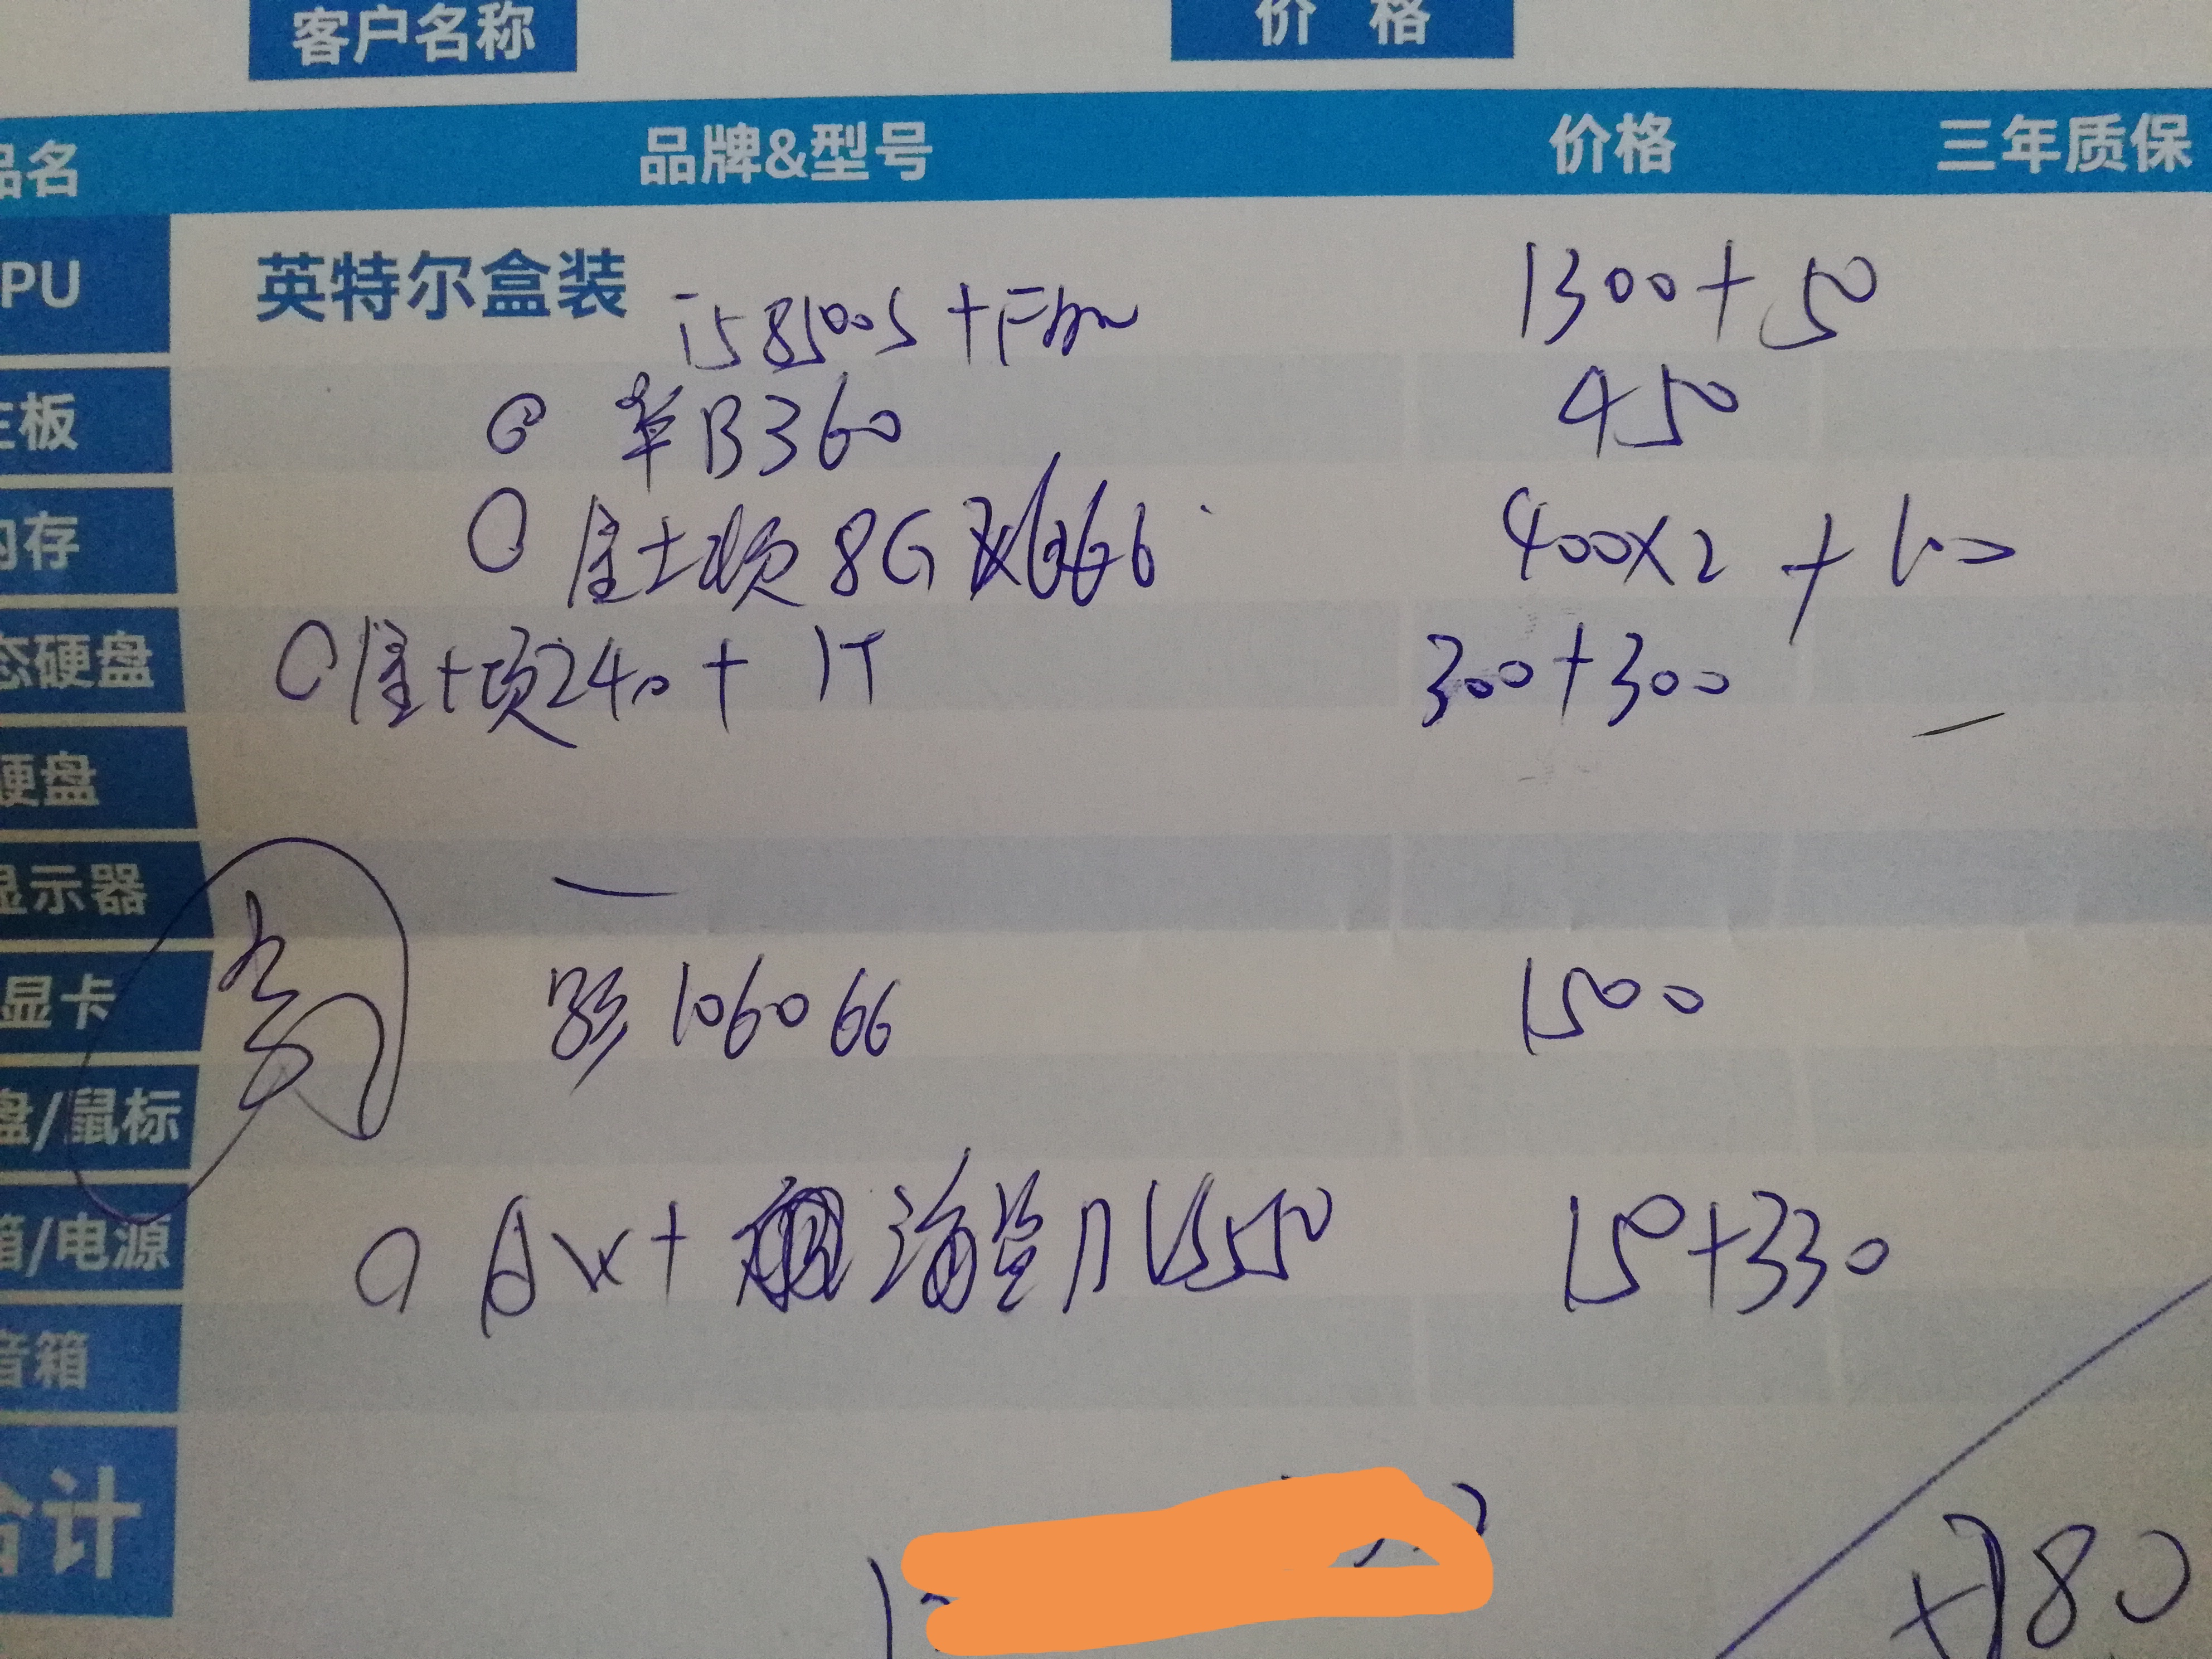 客户名称 价 格
品名 品牌&型号 价格 三年质保
PU 英特尔盒装 i5 8500S + Fan 1300+50
主板 华B360 450
内存 金士顿 8G 666 400X2 + 100
态硬盘 金士顿240 + 1T 300+300
硬盘
显示器 —
显卡 影 1060 6G 1500
盘/鼠标
箱/电源 + 海盗 VS550 150+330
音箱
合计 80